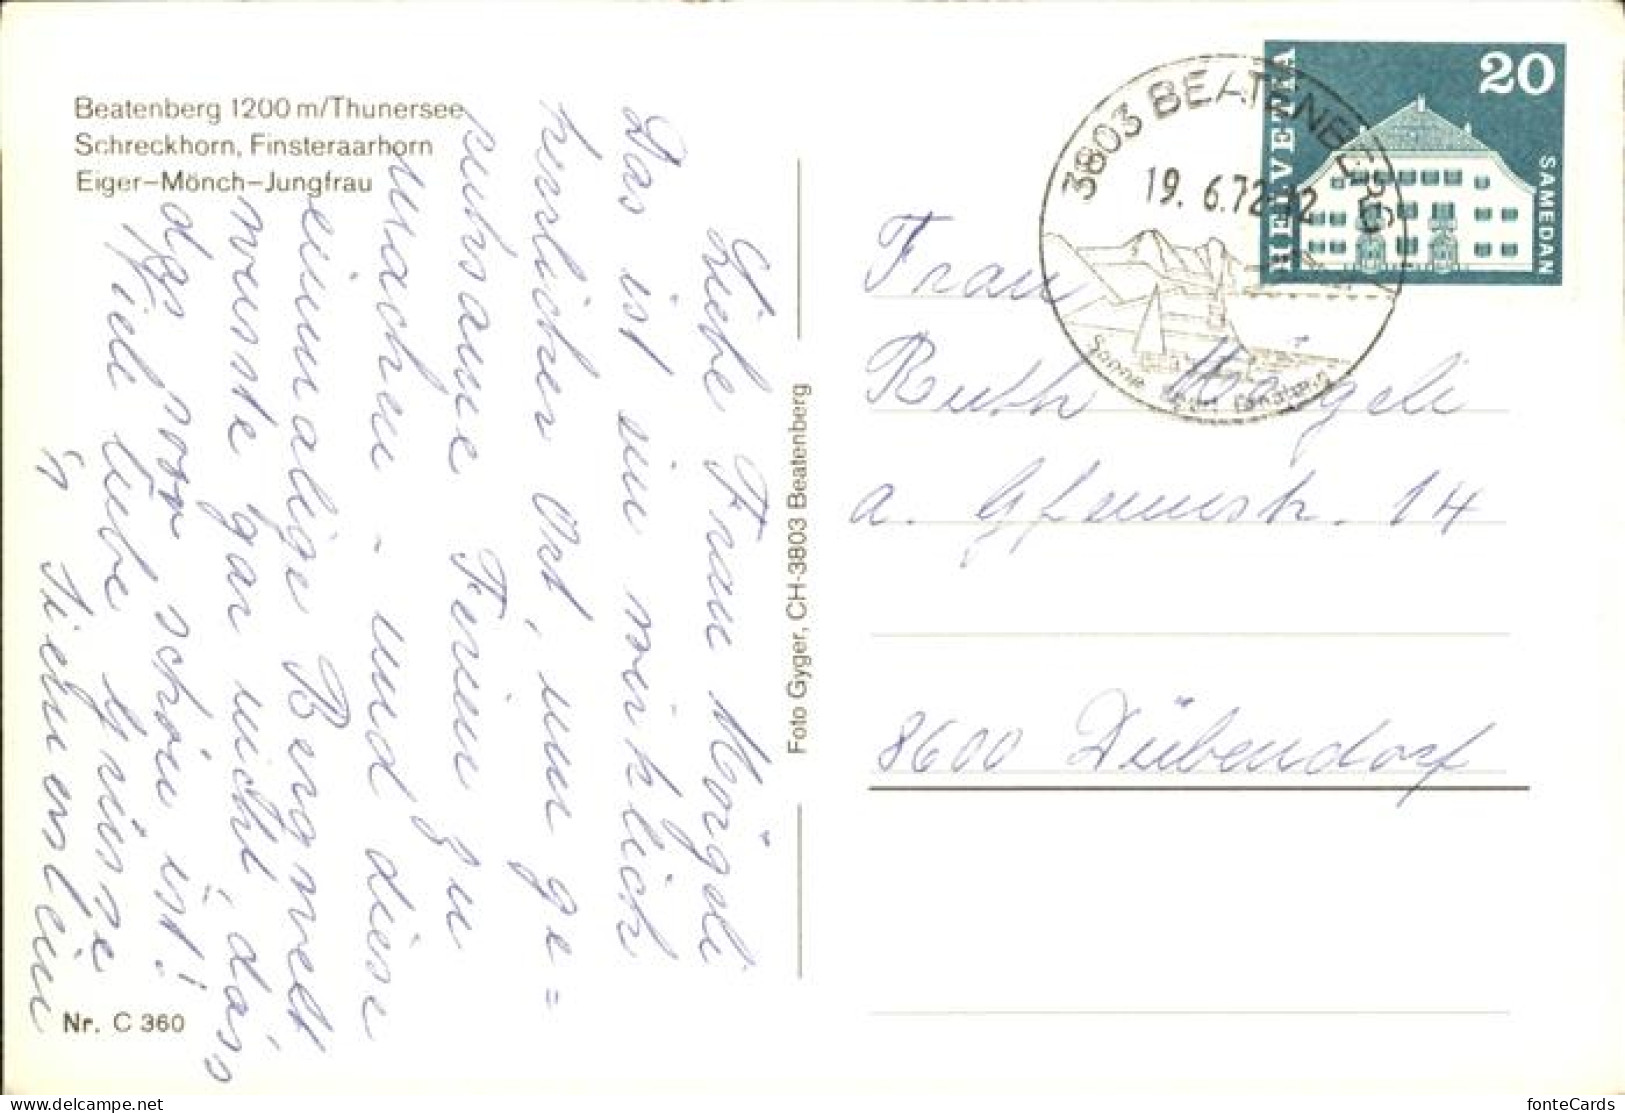 Beatenberg 1200 m/Thunersee
Schreckhorn, Finsteraarhorn
Eiger–Mönch–Jungfrau
Liebe Frau Mörgeli
Das ist ein wirklich
herrlicher Ort, um ge=
ruhsame Ferien zu
machen - und diese
einmalige Bergwelt
wusste gar nicht, dass
das so schön ist!
Viele liebe Grüsse
Foto Gyger, CH-3803 Beatenberg
Nr. C 360
3803 BEATENBERG
19. 6.72-12
Sonne
HELVETIA
20
SAMEDAN
Frau
Ruth Mörgeli
a. 14
8600 Dübendorf
fonteCards